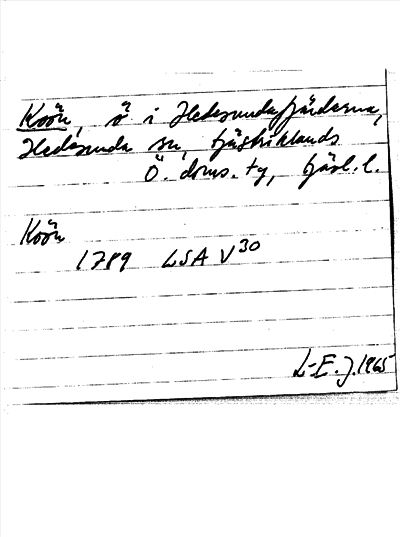 Koön, ö i Hedesundafjärdarna,
Hedesunda sn, Gästriklands
Ö. doms. tg, Gävl. l.
Koön
1789 LSA V30
L-E. J. 1965